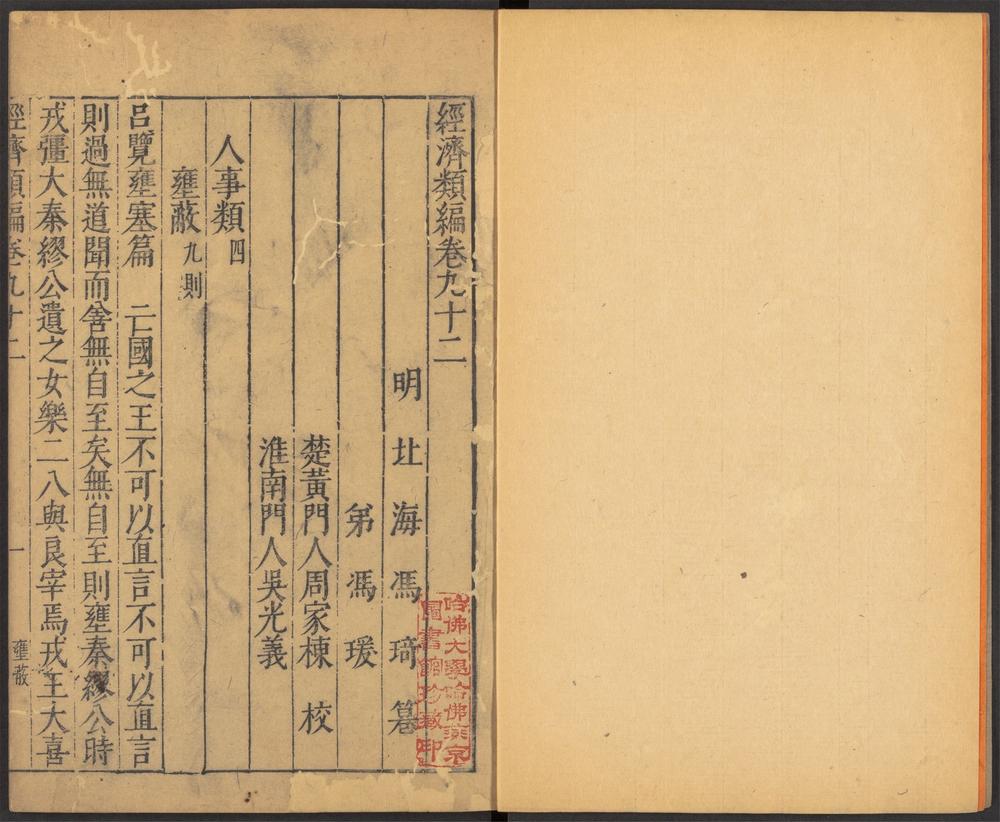 經濟類編卷九十二
明 北 海 馮 琦 纂
弟 馮 瑗
楚黃門人周家棟 校
淮南門人吳光義
人事類 四
壅蔽 九則
呂覽壅塞篇 亡國之王不可以直言不可以直言
則過無道聞而善無自至矣無自至則壅秦繆公時
戎彊大秦繆公遺之女樂二八與良宰焉戎王大喜
經濟類編卷九十二 一 壅蔽
哈佛大學哈佛燕京
圖書館珍藏印